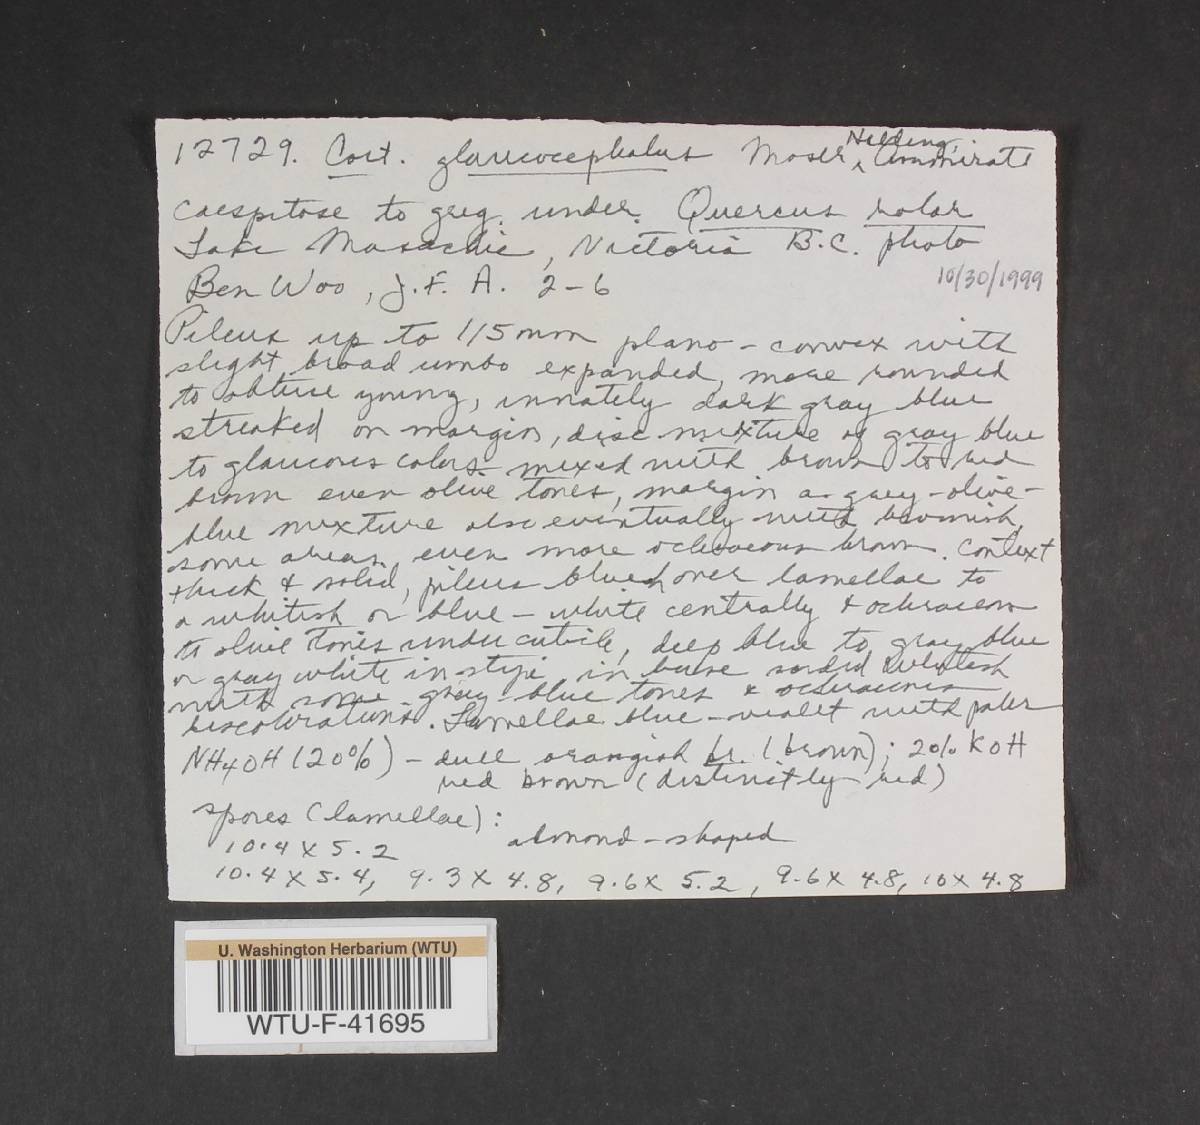 12729. Cort. glaucocephalus Moser, Nilding, Ammirati
Caespitose to greg. under. Quercus
Lake Masachie, Victoria B.C. photo
Ben Woo, J.F.A. 2-6
10/30/1999
Pileus up to 115mm plano-convex with
slight broad umbo expanded, more rounded
to obtuse young, innately dark gray blue
streaked on margin, disc mixture of gray blue
to glaucous colors mixed with brown to red
brown even olive tones, margin a gray-olive-
blue mixture also eventually with brownish,
some areas even more ochraceous brown. Context
thick & solid, pileus blueh over lamellae to
a whitish or blue-white centrally & ochraceous
to olive tones under cuticle, deep blue to gray blue
or gray white in stipe in base sordid whitish
with some gray-blue tones & ochraceous
discolorations. Lamellae blue-violet with paler
NH4OH (20%) - dull orangish br. (brown); 20% KOH
red brown (distinctly red)
spores (lamellae):
10.4 x 5.2 almond-shaped
10.4 x 5.4, 9.3 x 4.8, 9.6 x 5.2, 9.6 x 4.8, 10 x 4.8
U. Washington Herbarium (WTU)
WTU-F-41695